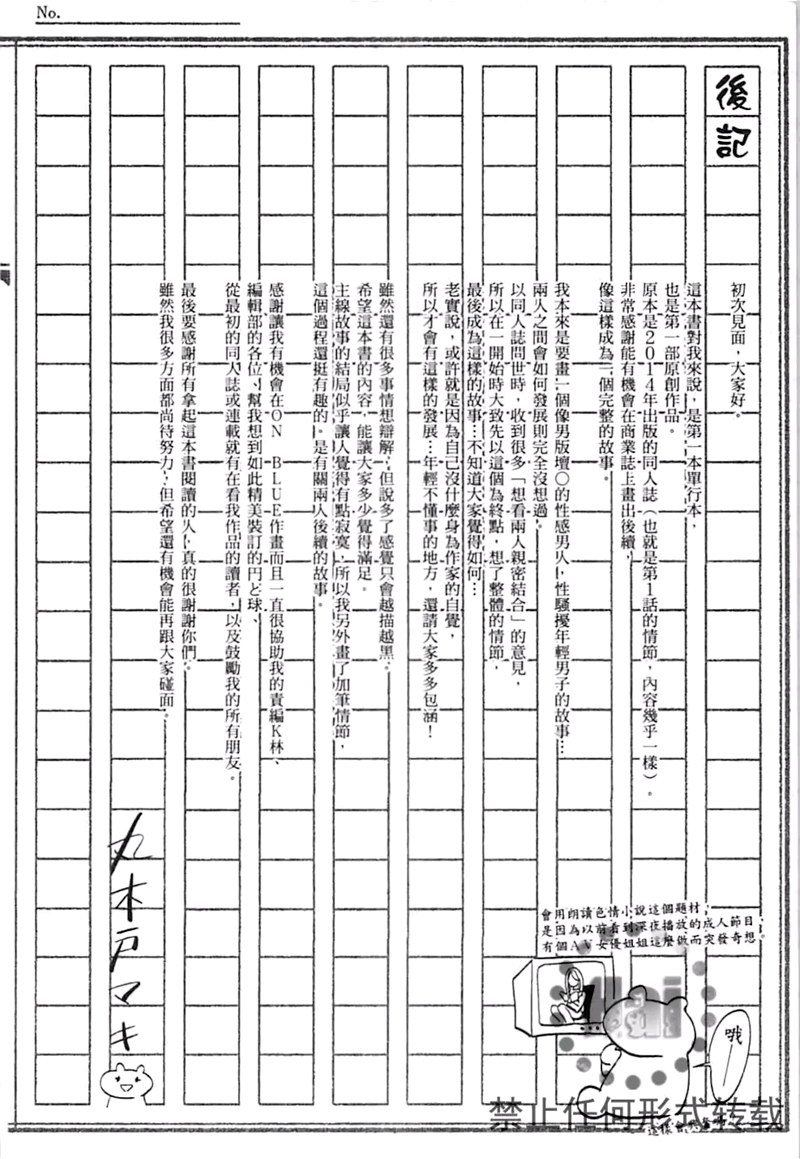 No.
後記
初次見面，大家好。
這本書對我來說，是第一本單行本，
也是第一部原創作品。
原本是2014年出版的同人誌（也就是第1話的情節，內容幾乎一樣）。
非常感謝能有機會在商業誌上畫出後續，
像這樣成為一個完整的故事。
我本來是要畫一個像男版壇〇的性感男人，性騷擾年輕男子的故事…
兩人之間會如何發展則完全沒想過。
以同人誌問世時，收到很多「想看兩人親密結合」的意見，
所以在一開始時大致先以這個為終點，想了整體的情節，
最後成為這樣的故事…不知道大家覺得如何…
老實說，或許就是因為自己沒什麼身為作家的自覺，
所以才會有這樣的發展…年輕不懂事的地方，還請大家多多包涵！
雖然還有很多事情想辯解，但說多了感覺只會越描越黑。
希望這本書的內容，能讓大家多少覺得滿足。
主線故事的結局似乎讓人覺得有點寂寞，所以我另外畫了加筆情節，
這個過程還挺有趣的。是有關兩人後續的故事。
感謝讓我有機會在ON BLUE作畫而且一直很協助我的責編K林、
編輯部的各位、幫我想到如此精美裝訂的円と球、
從最初的同人誌或連載就有在看我作品的讀者，以及鼓勵我的所有朋友。
最後要感謝所有拿起這本書閱讀的人，真的很謝謝你們。
雖然我很多方面都尚待努力，但希望還有機會能再跟大家碰面。
丸木戸マキ
會用朗讀色情小說這個題材，
是因為以前看到深夜播放的成人節目
有個AV女優姐姐這麼做而突發奇想。
哦
禁止任何形式转载